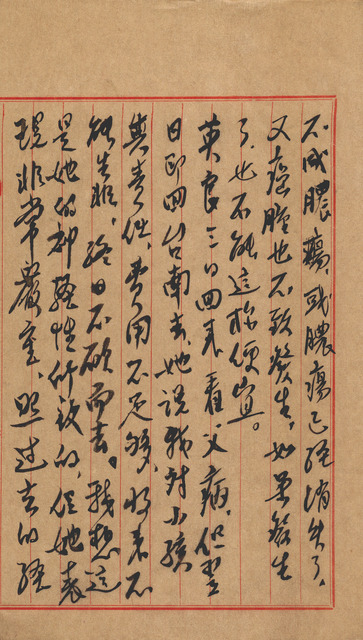 不成膿瘍，或膿瘍已經消失了，
又癌腫也不致發生，如果發生
了，也不能這樣便宜。
英良三日回来看父病，但翌
日即回台南去，她說我對小孩
無責任，費用不足够，将来不
能生非，終日不顧而去。我想這
是她的神經性所致的，但她表
現非常嚴重，照过去的經